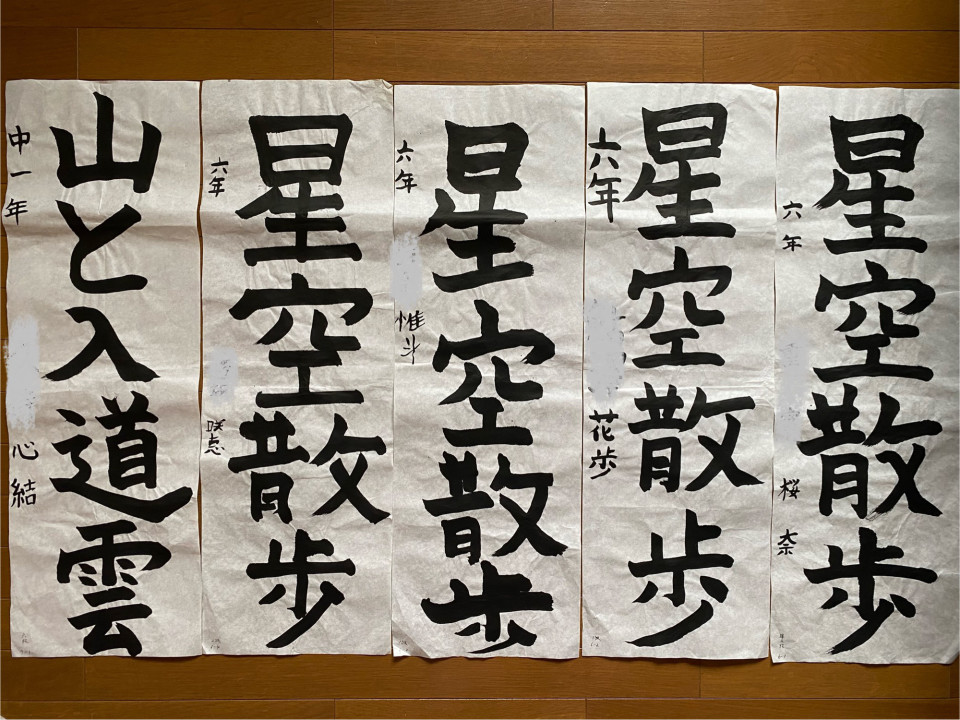 星空散歩
六年
桜奈
星空散歩
六年
花歩
星空散歩
六年
惟斗
星空散歩
六年
咲恵
山と入道雲
中一年
心結